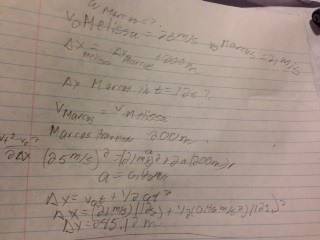 a Marcus = ?
v₀ Melissa = 25 m/s v₀ Marcus = 21 m/s
Δx Melissa = Δx Marcus 200m
Δx Marcus in t = 12s?
V Marcus = V Melissa
Marcus 200m
(25m/s)² = (21m/s)² + 2a(200m)
a =
Δx = v₀t + 1/2 at²
Δx = (21m/s)(12s) + 1/2 (0.46m/s²)(12s)²